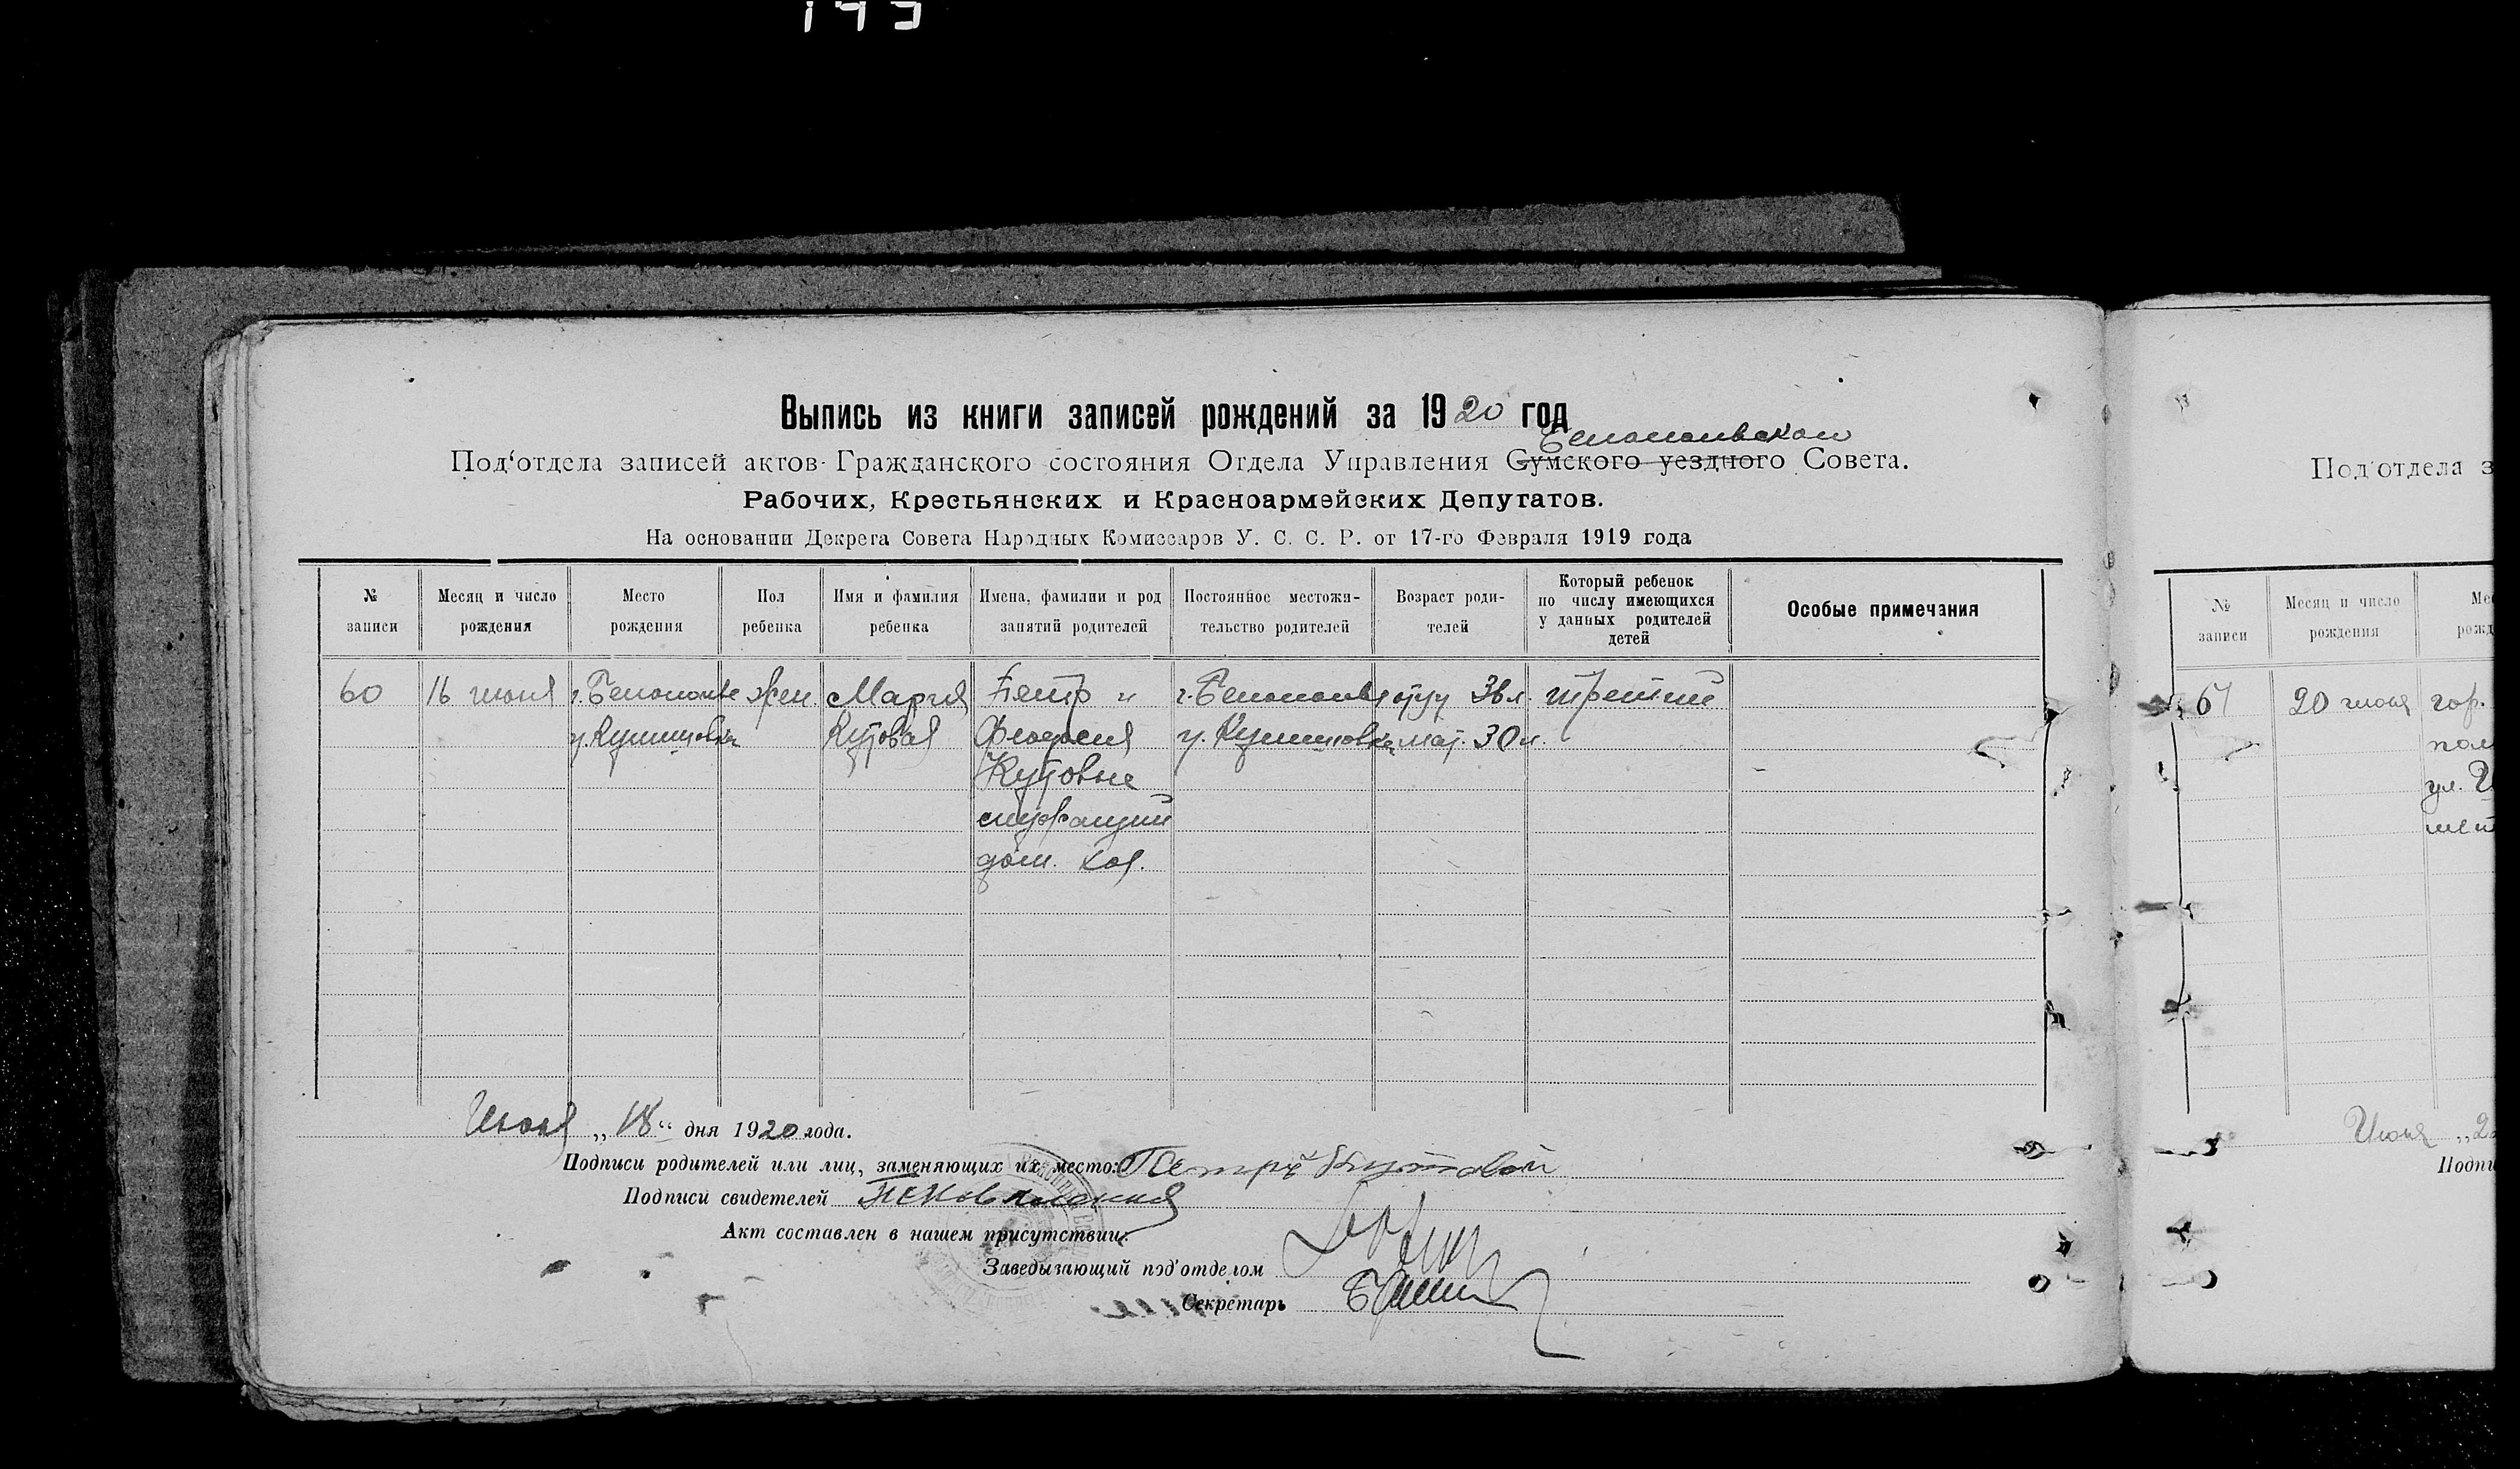 143
Выпись из книги записей рождений за 1920 год
Белопольском
Под'отдела записей актов Гражданского состояния Отдела Управления Сумского уездного Совета.
Рабочих, Крестьянских и Красноармейских Депутатов.
На основании Декрета Совета Народных Комиссаров У. С. С. Р. от 17-го Февраля 1919 года
№ записи
Месяц и число рождения
Место рождения
Пол ребенка
Имя и фамилия ребенка
Имена, фамилии и род занятий родителей
Постоянное местожительство родителей
Возраст родителей
Который ребенок по числу имеющихся у данных родителей детей
Особые примечания
60
16 июня
г. Белополье
жен.
Мария
Кутовая
Петр и
Феодосия
Кутовые
служащий
дом. хоз.
г. Белополье
отцу 36 л.
мат. 30 л.
третий
Июня „18" дня 1920 года.
Подписи родителей или лиц, заменяющих их место: Петръ Кутовой
Подписи свидетелей
Акт составлен в нашем присутствии:
Заведывающий под'отделом
Секретарь
Под'отдела з
№ записи
Месяц и число рождения
Мес
рожд
61
20 июня
гор.
пол
ул.
Июня „2
Подпи